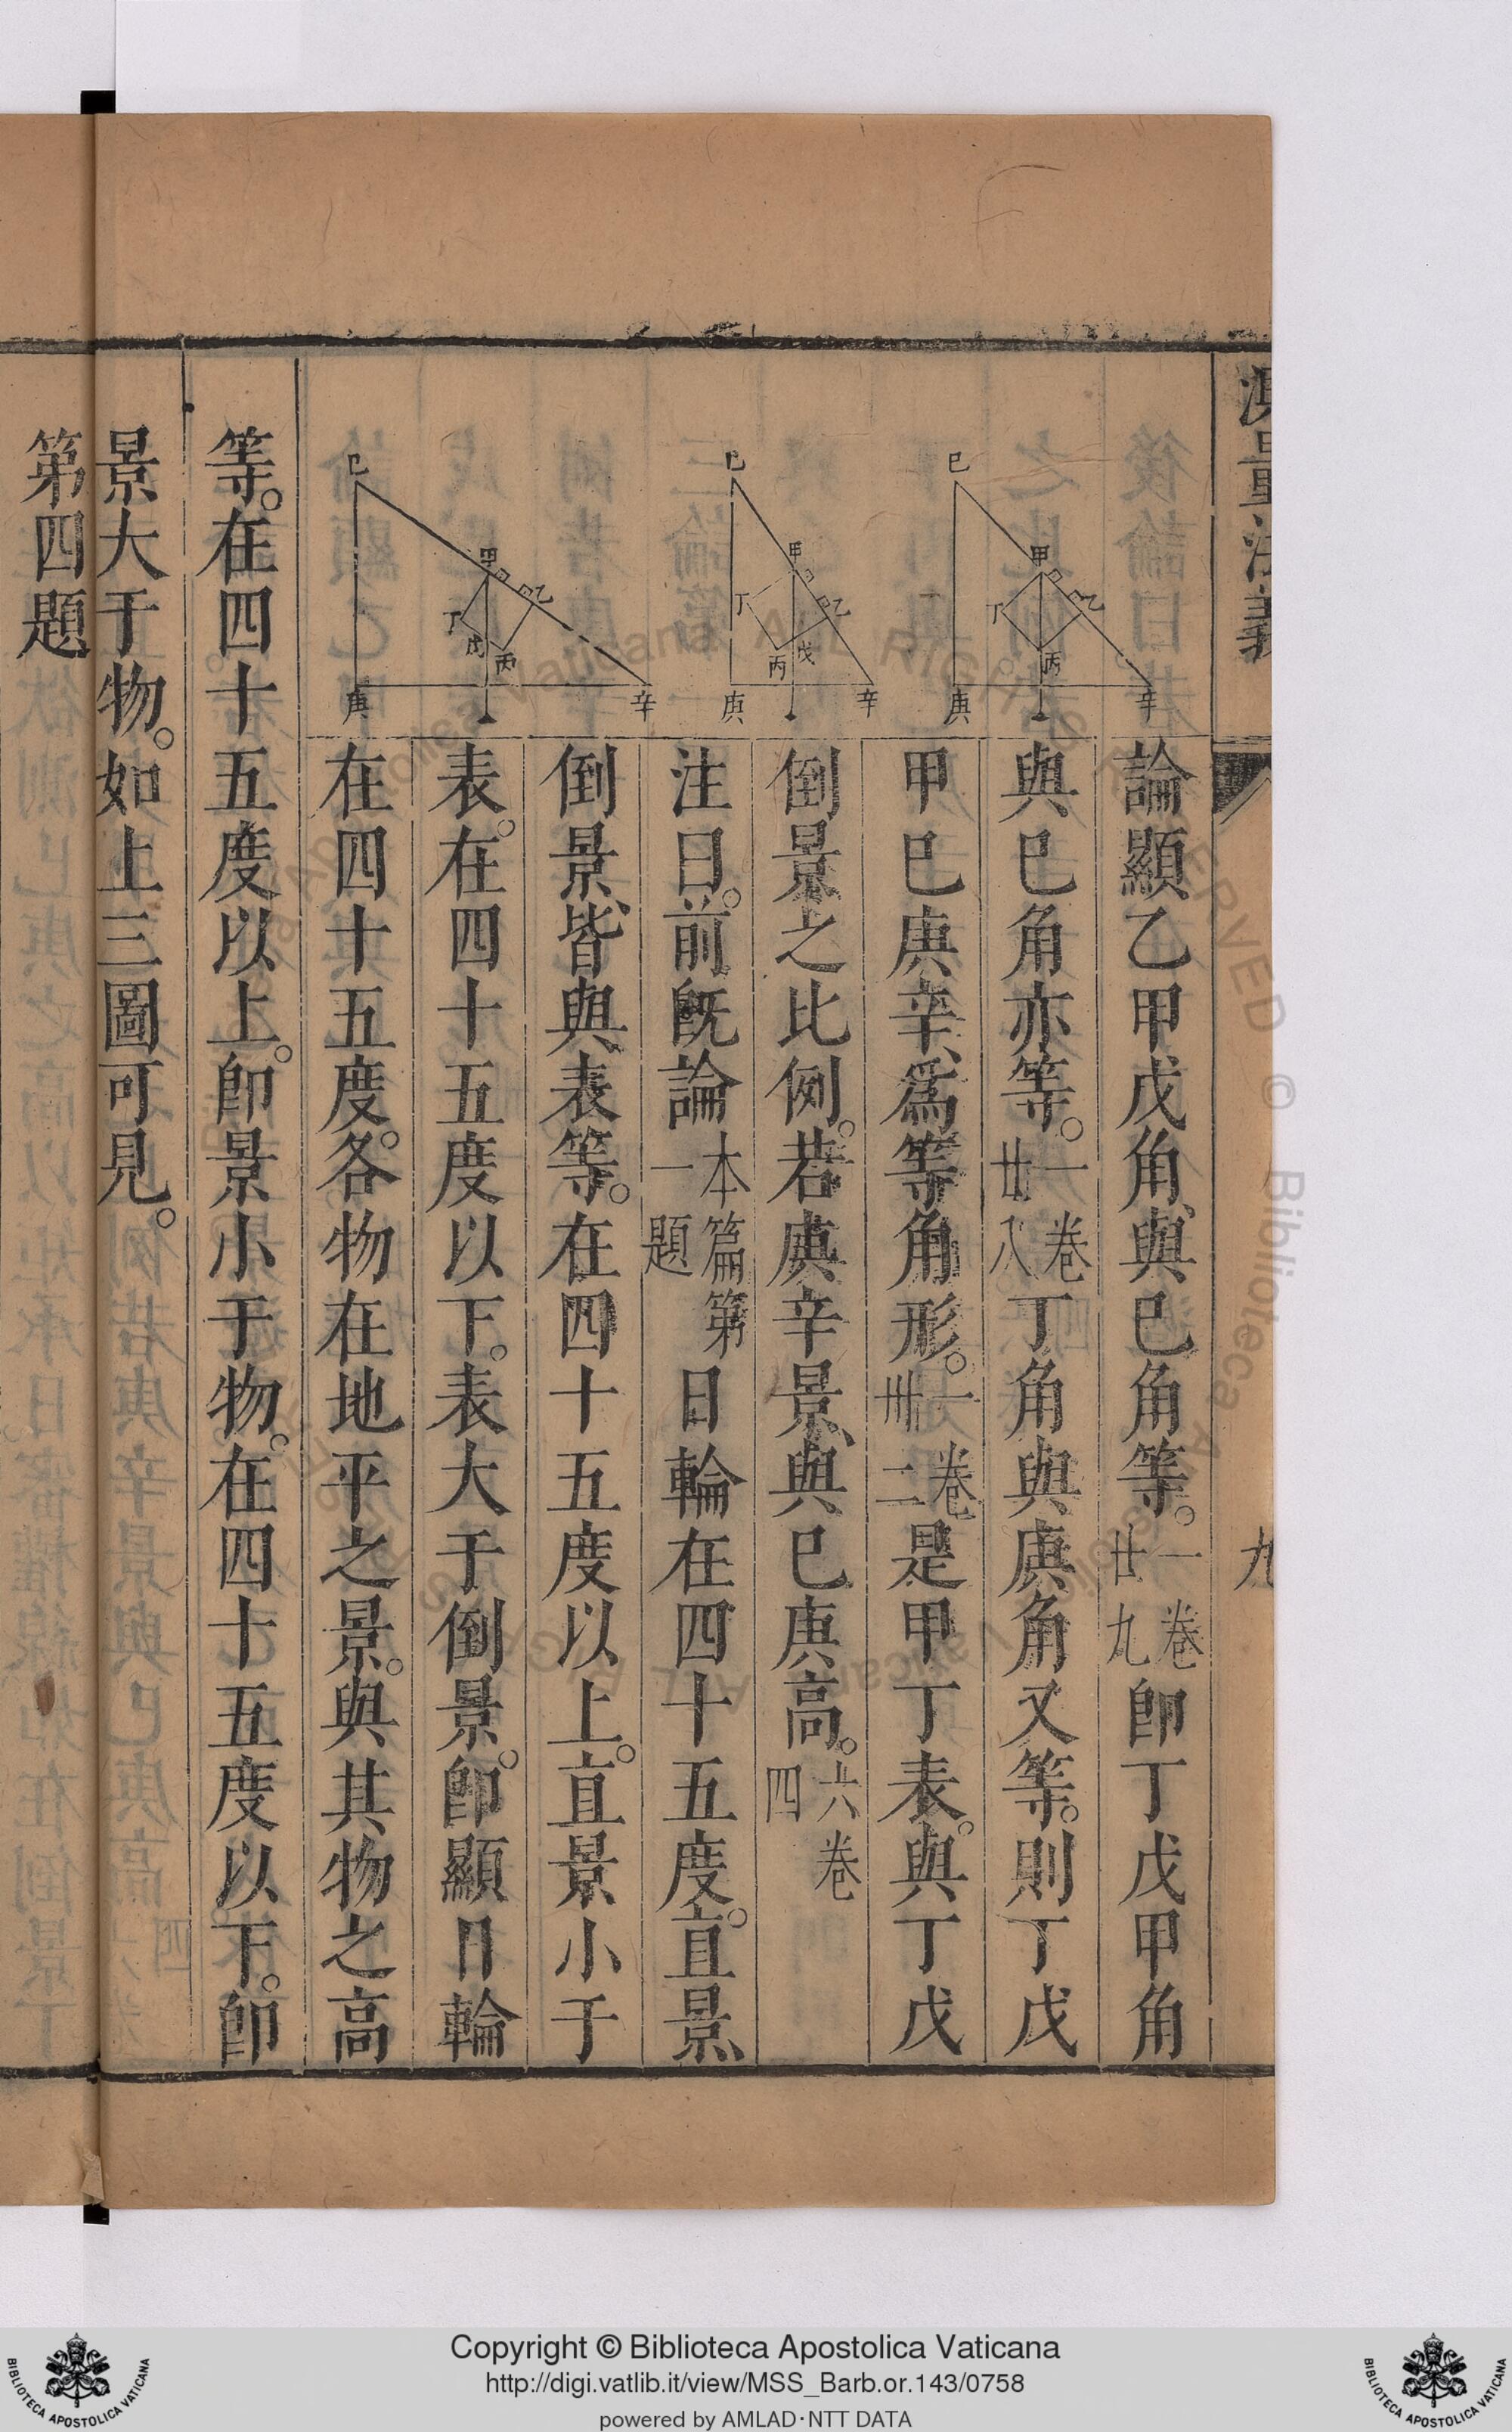 測量法義
九
論顯乙甲戊角、與己角等。一卷廿九卽丁戊甲角
與己角亦等。一卷廿八丁角與庚角又等。則丁戊
甲己庚辛、爲等角形。一卷卅二是甲丁表。與丁戊
倒景之比例。若庚辛景、與己庚高。六卷四
注曰。前旣論本篇第一題日輪在四十五度。直景、
倒景、皆與表等。在四十五度以上。直景小于
表。在四十五度以下。表大于倒景。卽顯日輪
在四十五度。各物在地平之景。與其物之高
等。在四十五度以上。卽景小于物。在四十五度以下。卽
景大于物。如上三圖可見。
第四題
己 甲 乙 丁 丙 庚 辛
己 甲 乙 丁 丙 戊 庚 辛
己 甲 乙 丁 戊 丙 庚 辛
Copyright © Biblioteca Apostolica Vaticana
http://digi.vatlib.it/view/MSS_Barb.or.143/0758
powered by AMLAD·NTT DATA
BIBLIOTECA APOSTOLICA VATICANA
BIBLIOTECA APOSTOLICA VATICANA